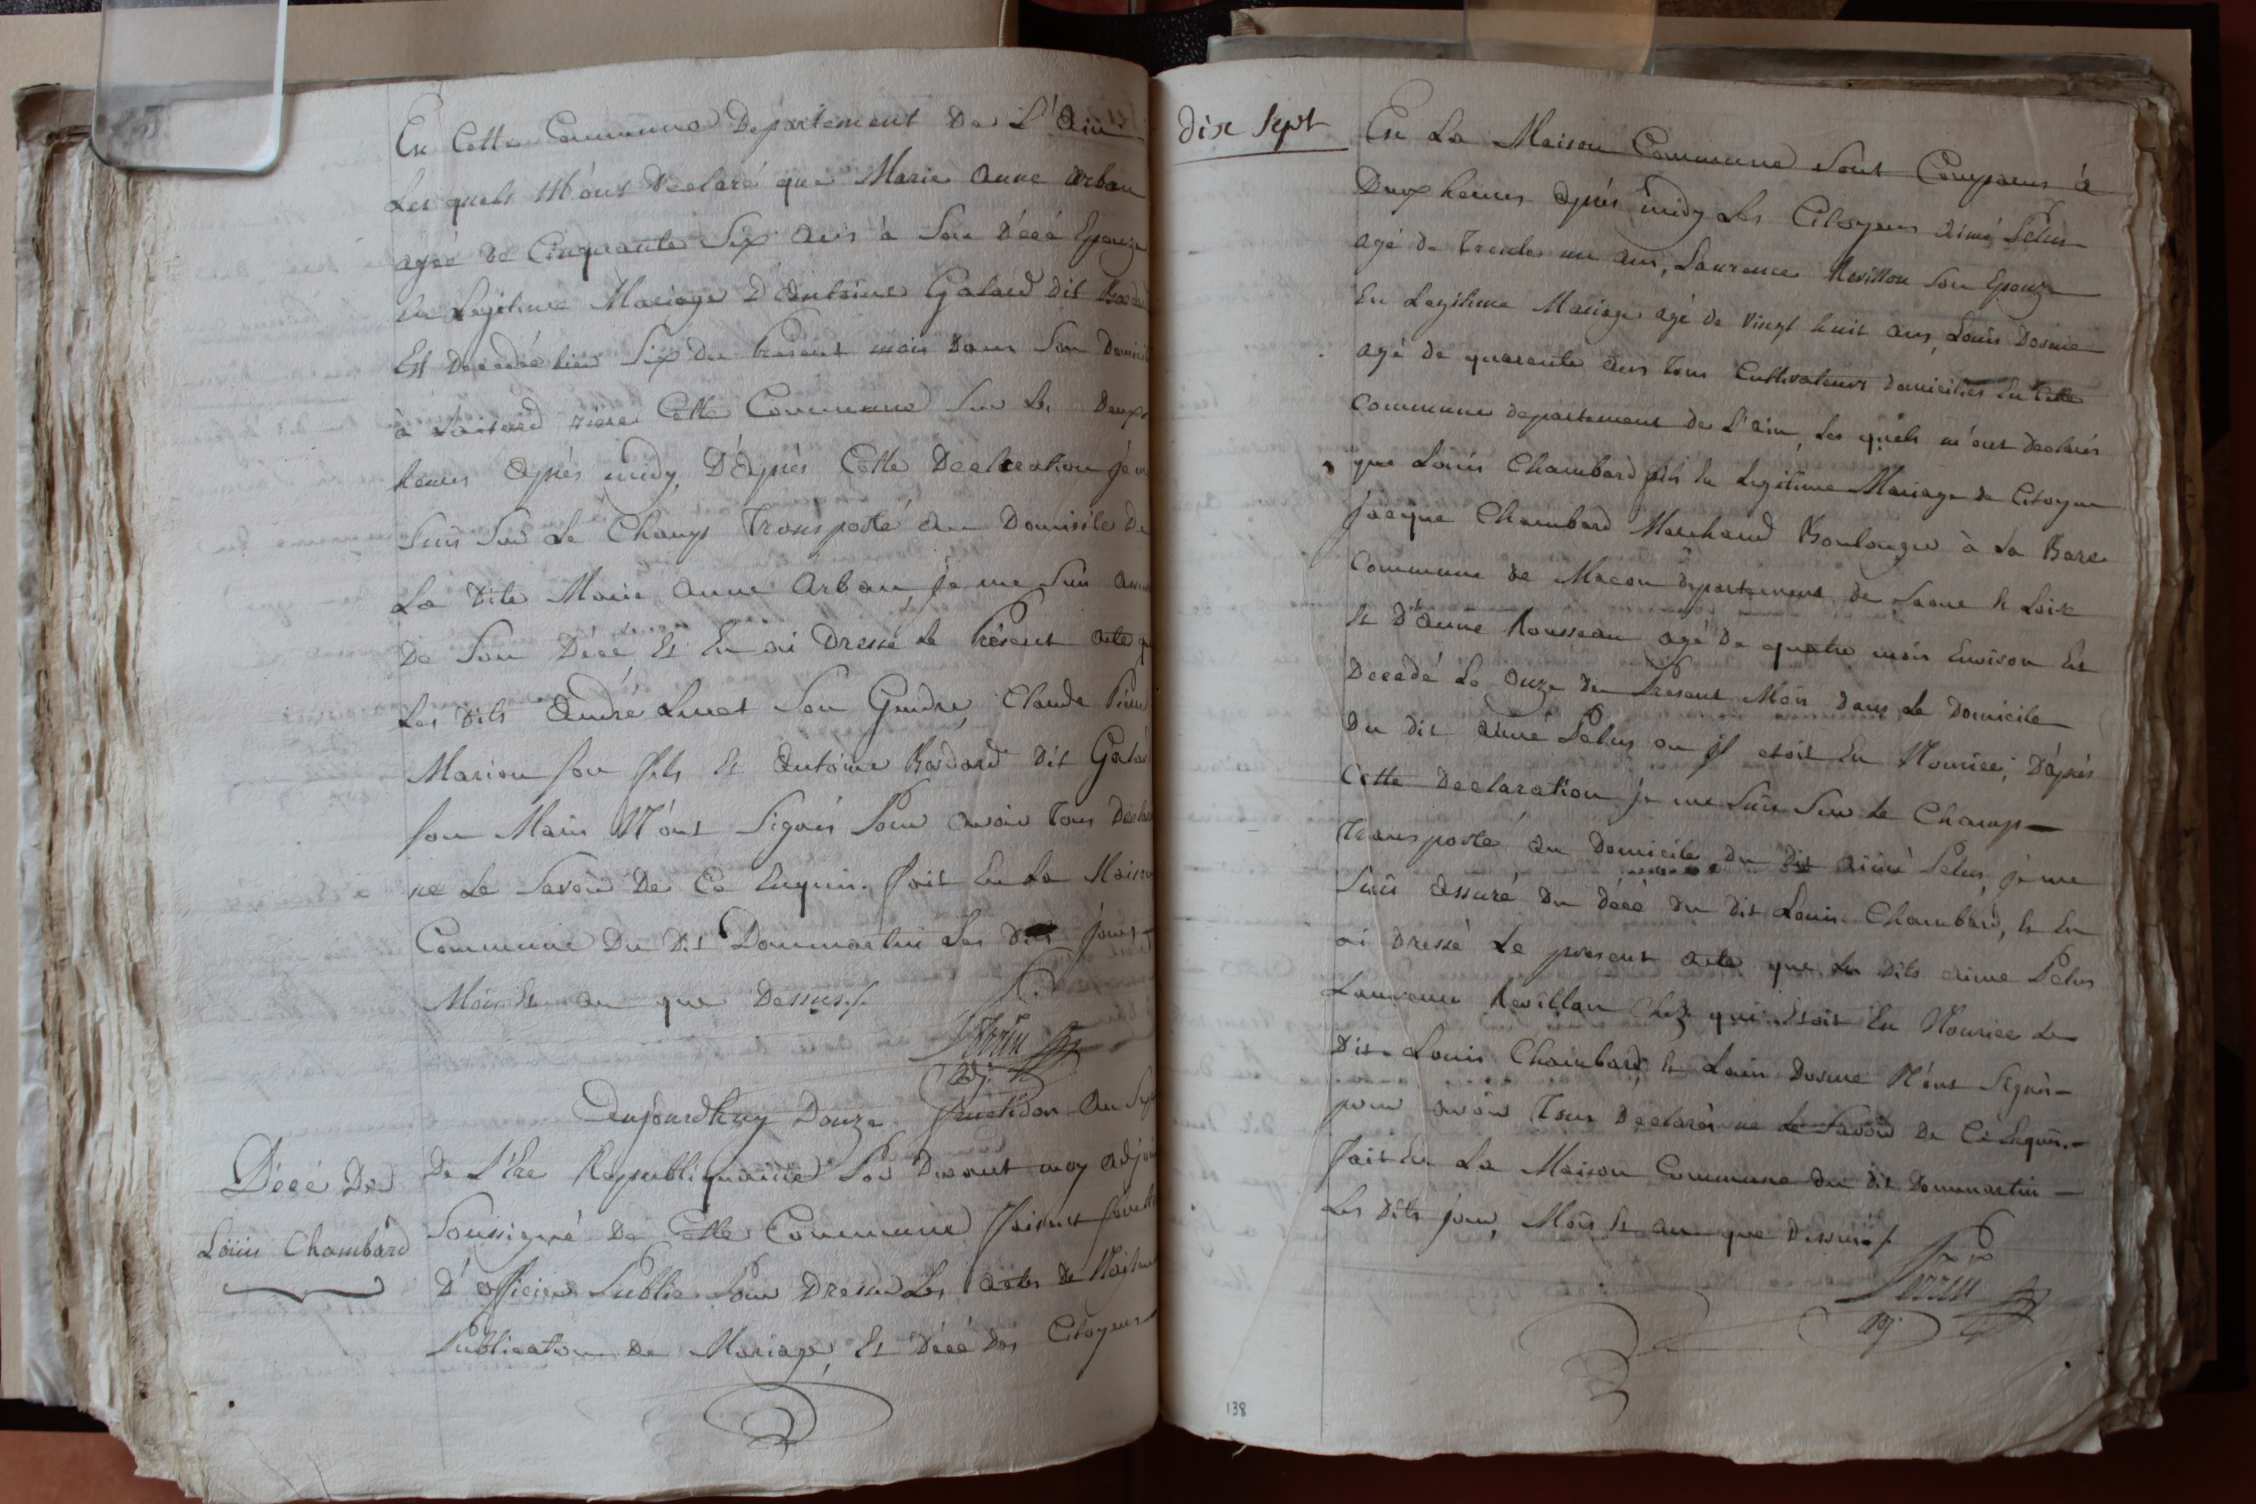 En Cette Commune Departement De L'Ain
Les quels M'ont Declaré que Marie anne arban
agée de Cinquante Six ans à Son Décé Epouze
En Legitime Mariage D'Antoine Galand dit
Est Decedée hier Six du present mois dans Son Domicil
à rière Cette Commune Sur Les Deux
heures après midy, D'après Cette Declaration je m
Suis Sur Le Champ Transporté au Domicile De
La dite Marie anne arban je me Suis
De Son Décé Et En ai Dressé Le Présent acte q
Les dits André Son Gendre, Claude
Marion Son fils Et antoine dit Galan
Son Maris N'ont Signés Pour avoir Tous Decla
ne Le Savoir De Ce Enquis. fait En La Maison
Commune Du dit Dommartin Les dits jour
Mois Et an que Dessus./.
Perrin
adj.
Aujourdhuy Douze fructidor an Sept
Décé De
Louis Chambard
De L'Ere Republiquaine Par Devant moy adjoin
Soussigné De Cette Commune faisant
D'officier Public Pour Dresser Les actes de Naiss
Publication de Mariage, Et Décé des Citoyens
dix sept
En La Maison Commune Sont Comparus à
Deux heures après midy Les Citoyens aimé Pelus
agé de Trente un ans, Laurence Revillon Son Epouze
En Legitime Mariage agé de vingt huit ans, Louis Dosme
agé de quarente ans Tous Cultivateurs domiciliés En Cette
Commune departement de L'ain, Les quels m'ont Declarés
que Louis Chambard fils En Legitime Mariage de Citoyen
Jacque Chambard Marchand Boulonger à La Bare
Commune de Macon departement de Saone Et Loire
Et D'anne Rousseau agé de quatre mois Environ Est
Decedé Le onze du Present Mois dans Le Domicile
Du dit aimé Pelus ou il etoit En Nourice, D'après
Cette Declaration je me Suis Sur Le Champ
Transporté au Domicile du dit aimé Pelus, je me
Suis assuré Du Décé Du dit Louis Chambard, Et En
ai Dressé Le present acte que Les dits aimé Pelus
Laurence Revillon Chez qui Etoit En Nourice Le
Dit Louis Chambard, Et Louis Dosme N'ont Signés
pour avoir Tous Declarés ne Le Savoir De Ce Enquis.
fait En La Maison Commune du dit Dommartin
Les dits jour, Mois Et an que Dessus./.
Perrin
adj.
138